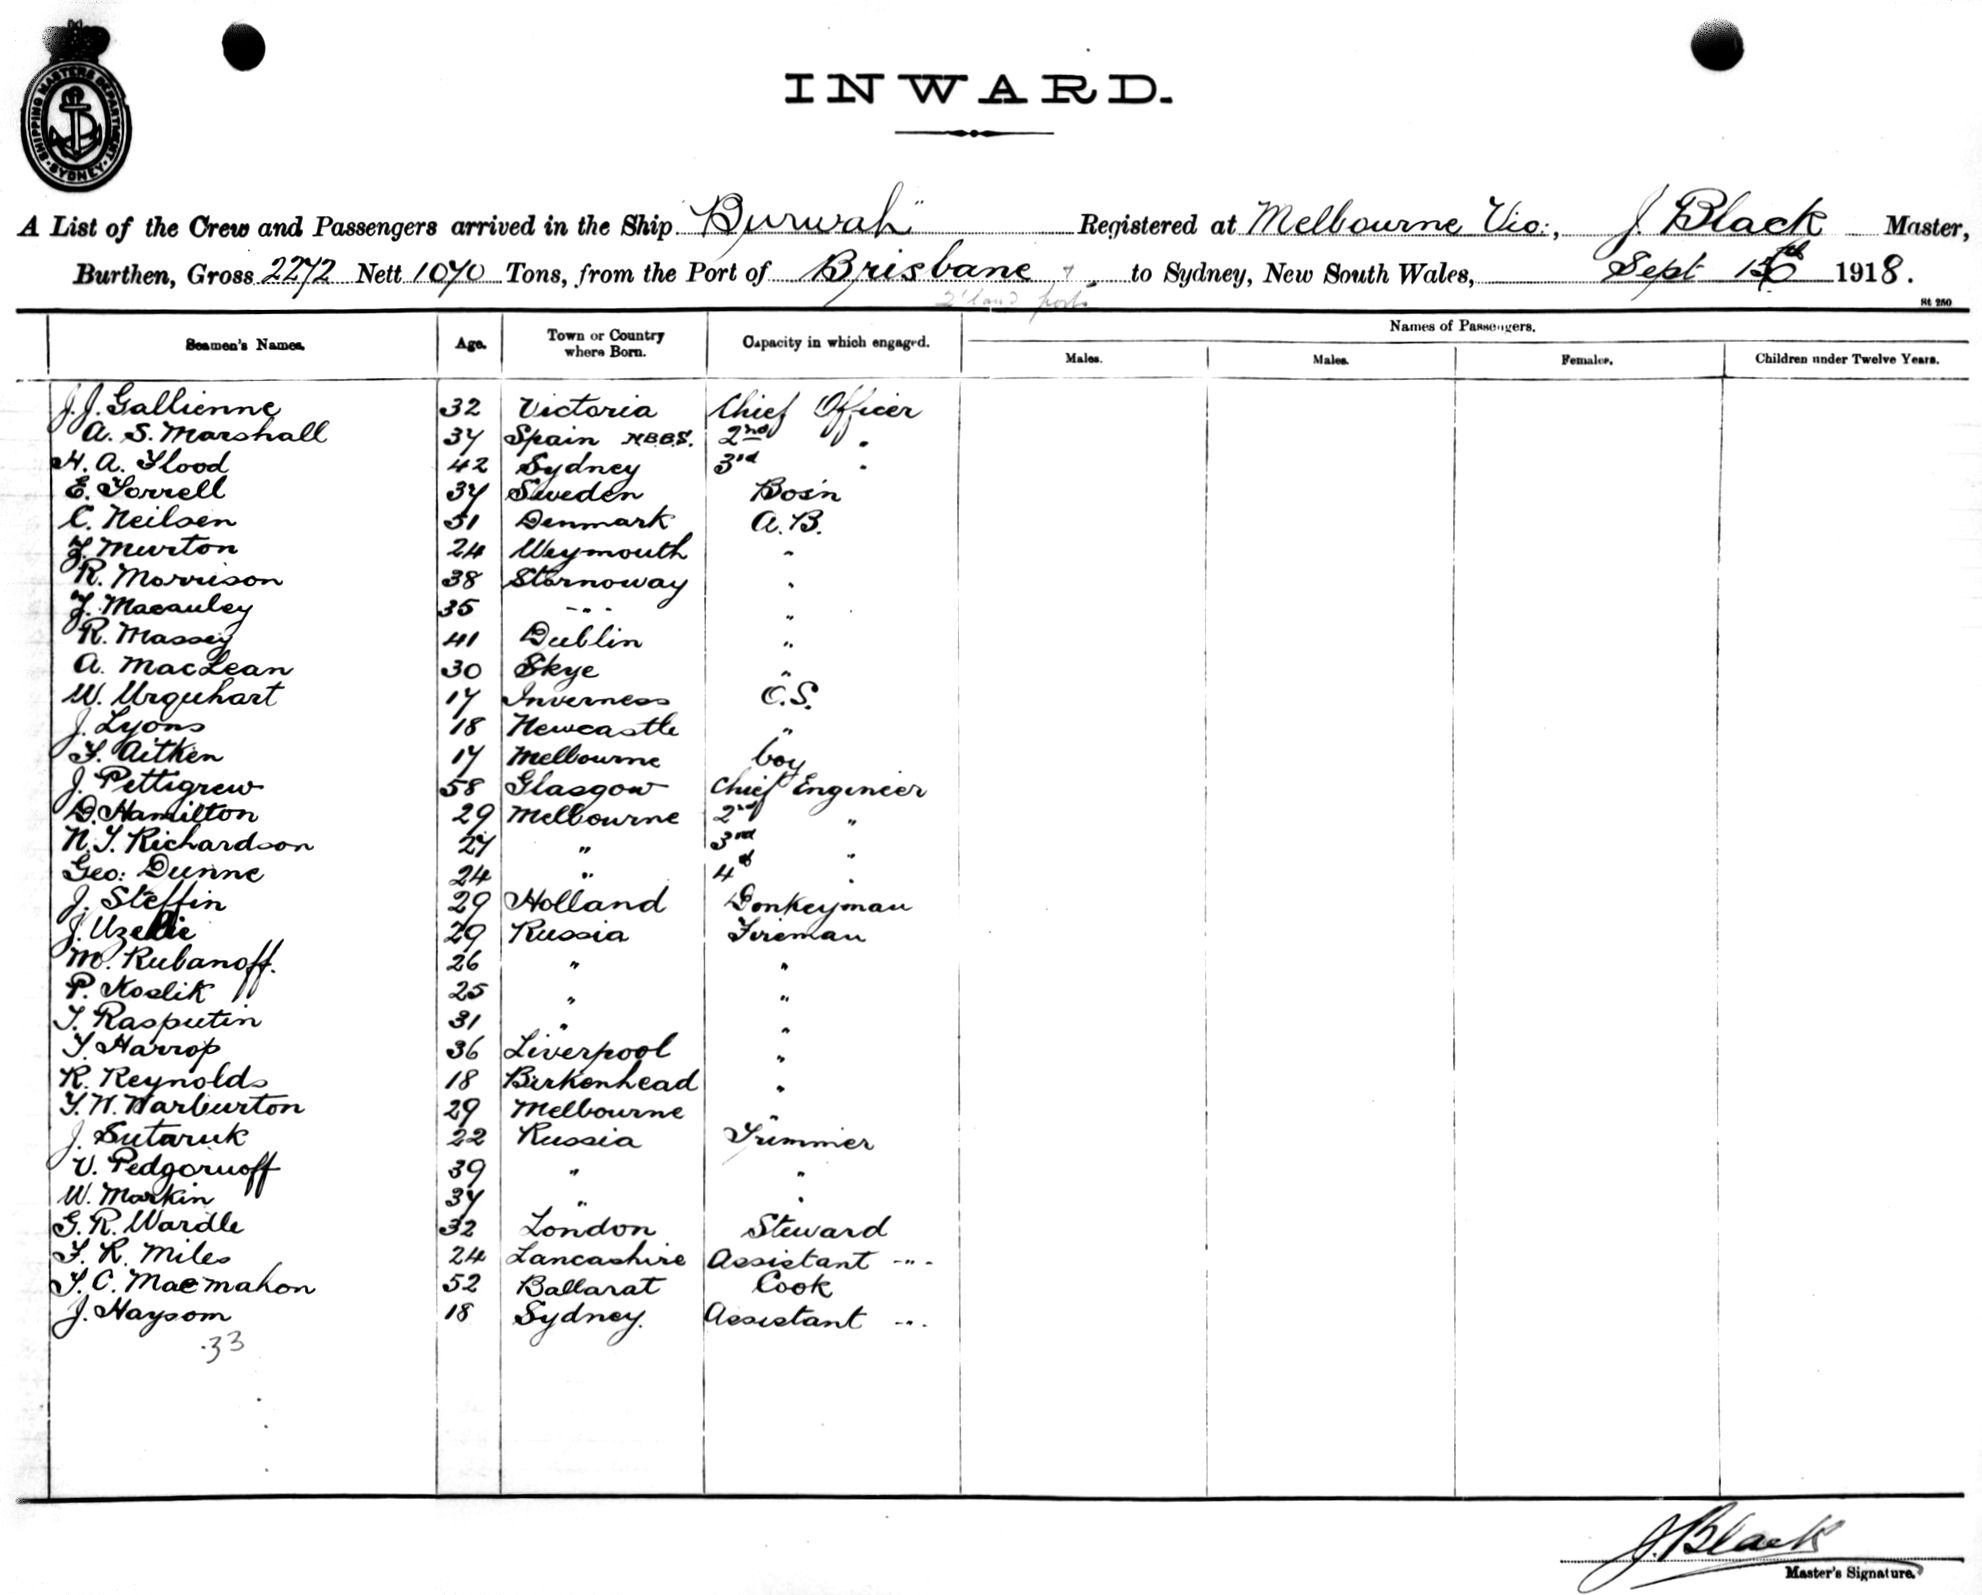 SHIPPING MASTERS DEPARTMENT · SYDNEY ·
INWARD.
A List of the Crew and Passengers arrived in the Ship "Burwah" Registered at Melbourne Vic:, J. Black Master,
Burthen, Gross 2272 Nett 1070 Tons, from the Port of Brisbane to Sydney, New South Wales, Sept 1918.
St 250
Seamen's Names. Age. Town or Country where Born. Capacity in which engaged. Names of Passengers.
Males. Males. Females. Children under Twelve Years.
J. J. Gallienne 32 Victoria Chief Officer
A. S. Marshall 37 Spain N.B.B.S. 2nd "
H. A. Flood 42 Sydney 3rd "
E. Torrell 37 Sweden Bos'n
C. Neilsen 51 Denmark A.B.
F. Murton 24 Weymouth "
R. Morrison 38 Stornoway "
J. Macauley 35 -"- "
R. Massey 41 Dublin "
A. MacLean 30 Skye "
W. Urquhart 17 Inverness O.S.
J. Lyons 18 Newcastle "
F. Aitken 17 Melbourne boy
J. Pettigrew 58 Glasgow Chief Engineer
D. Hamilton 29 Melbourne 2nd "
N. T. Richardson 27 " 3rd "
Geo: Dunne 24 " 4th "
J. Steffin 29 Holland Donkeyman
J. 29 Russia Fireman
M. Rubanoff. 26 " "
P. Koslik 25 " "
T. Rasputin 31 " "
T. Harrop 36 Liverpool "
R. Reynolds 18 Birkenhead "
T. W. Warburton 29 Melbourne "
J. Sutaruk 22 Russia Trimmer
V. Pedgornoff 39 " "
W. Markin 37 " "
G. R. Wardle 32 London Steward
F. R. Miles 24 Lancashire Assistant -"-
T. C. Macmahon 52 Ballarat Cook
J. Haysom 18 Sydney. Assistant -"-
33
J. Black
Master's Signature.